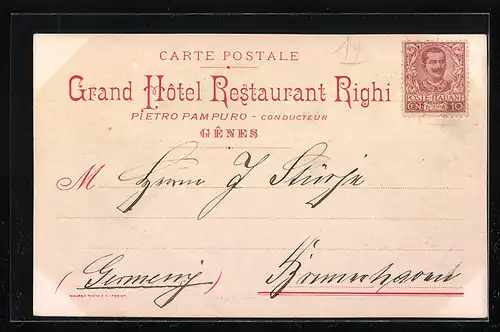 CARTE POSTALE
Grand Hôtel Restaurant Righi
PIETRO PAMPURO - CONDUCTEUR
GÊNES
POSTE ITALIANE
CENT 10
M Herrn J Stürje
(Germany) Bremerhaven